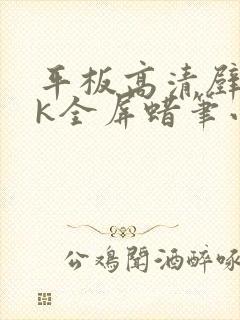 平板高清壁
K全屏蜡笔小
公鸡闻酒醉啄